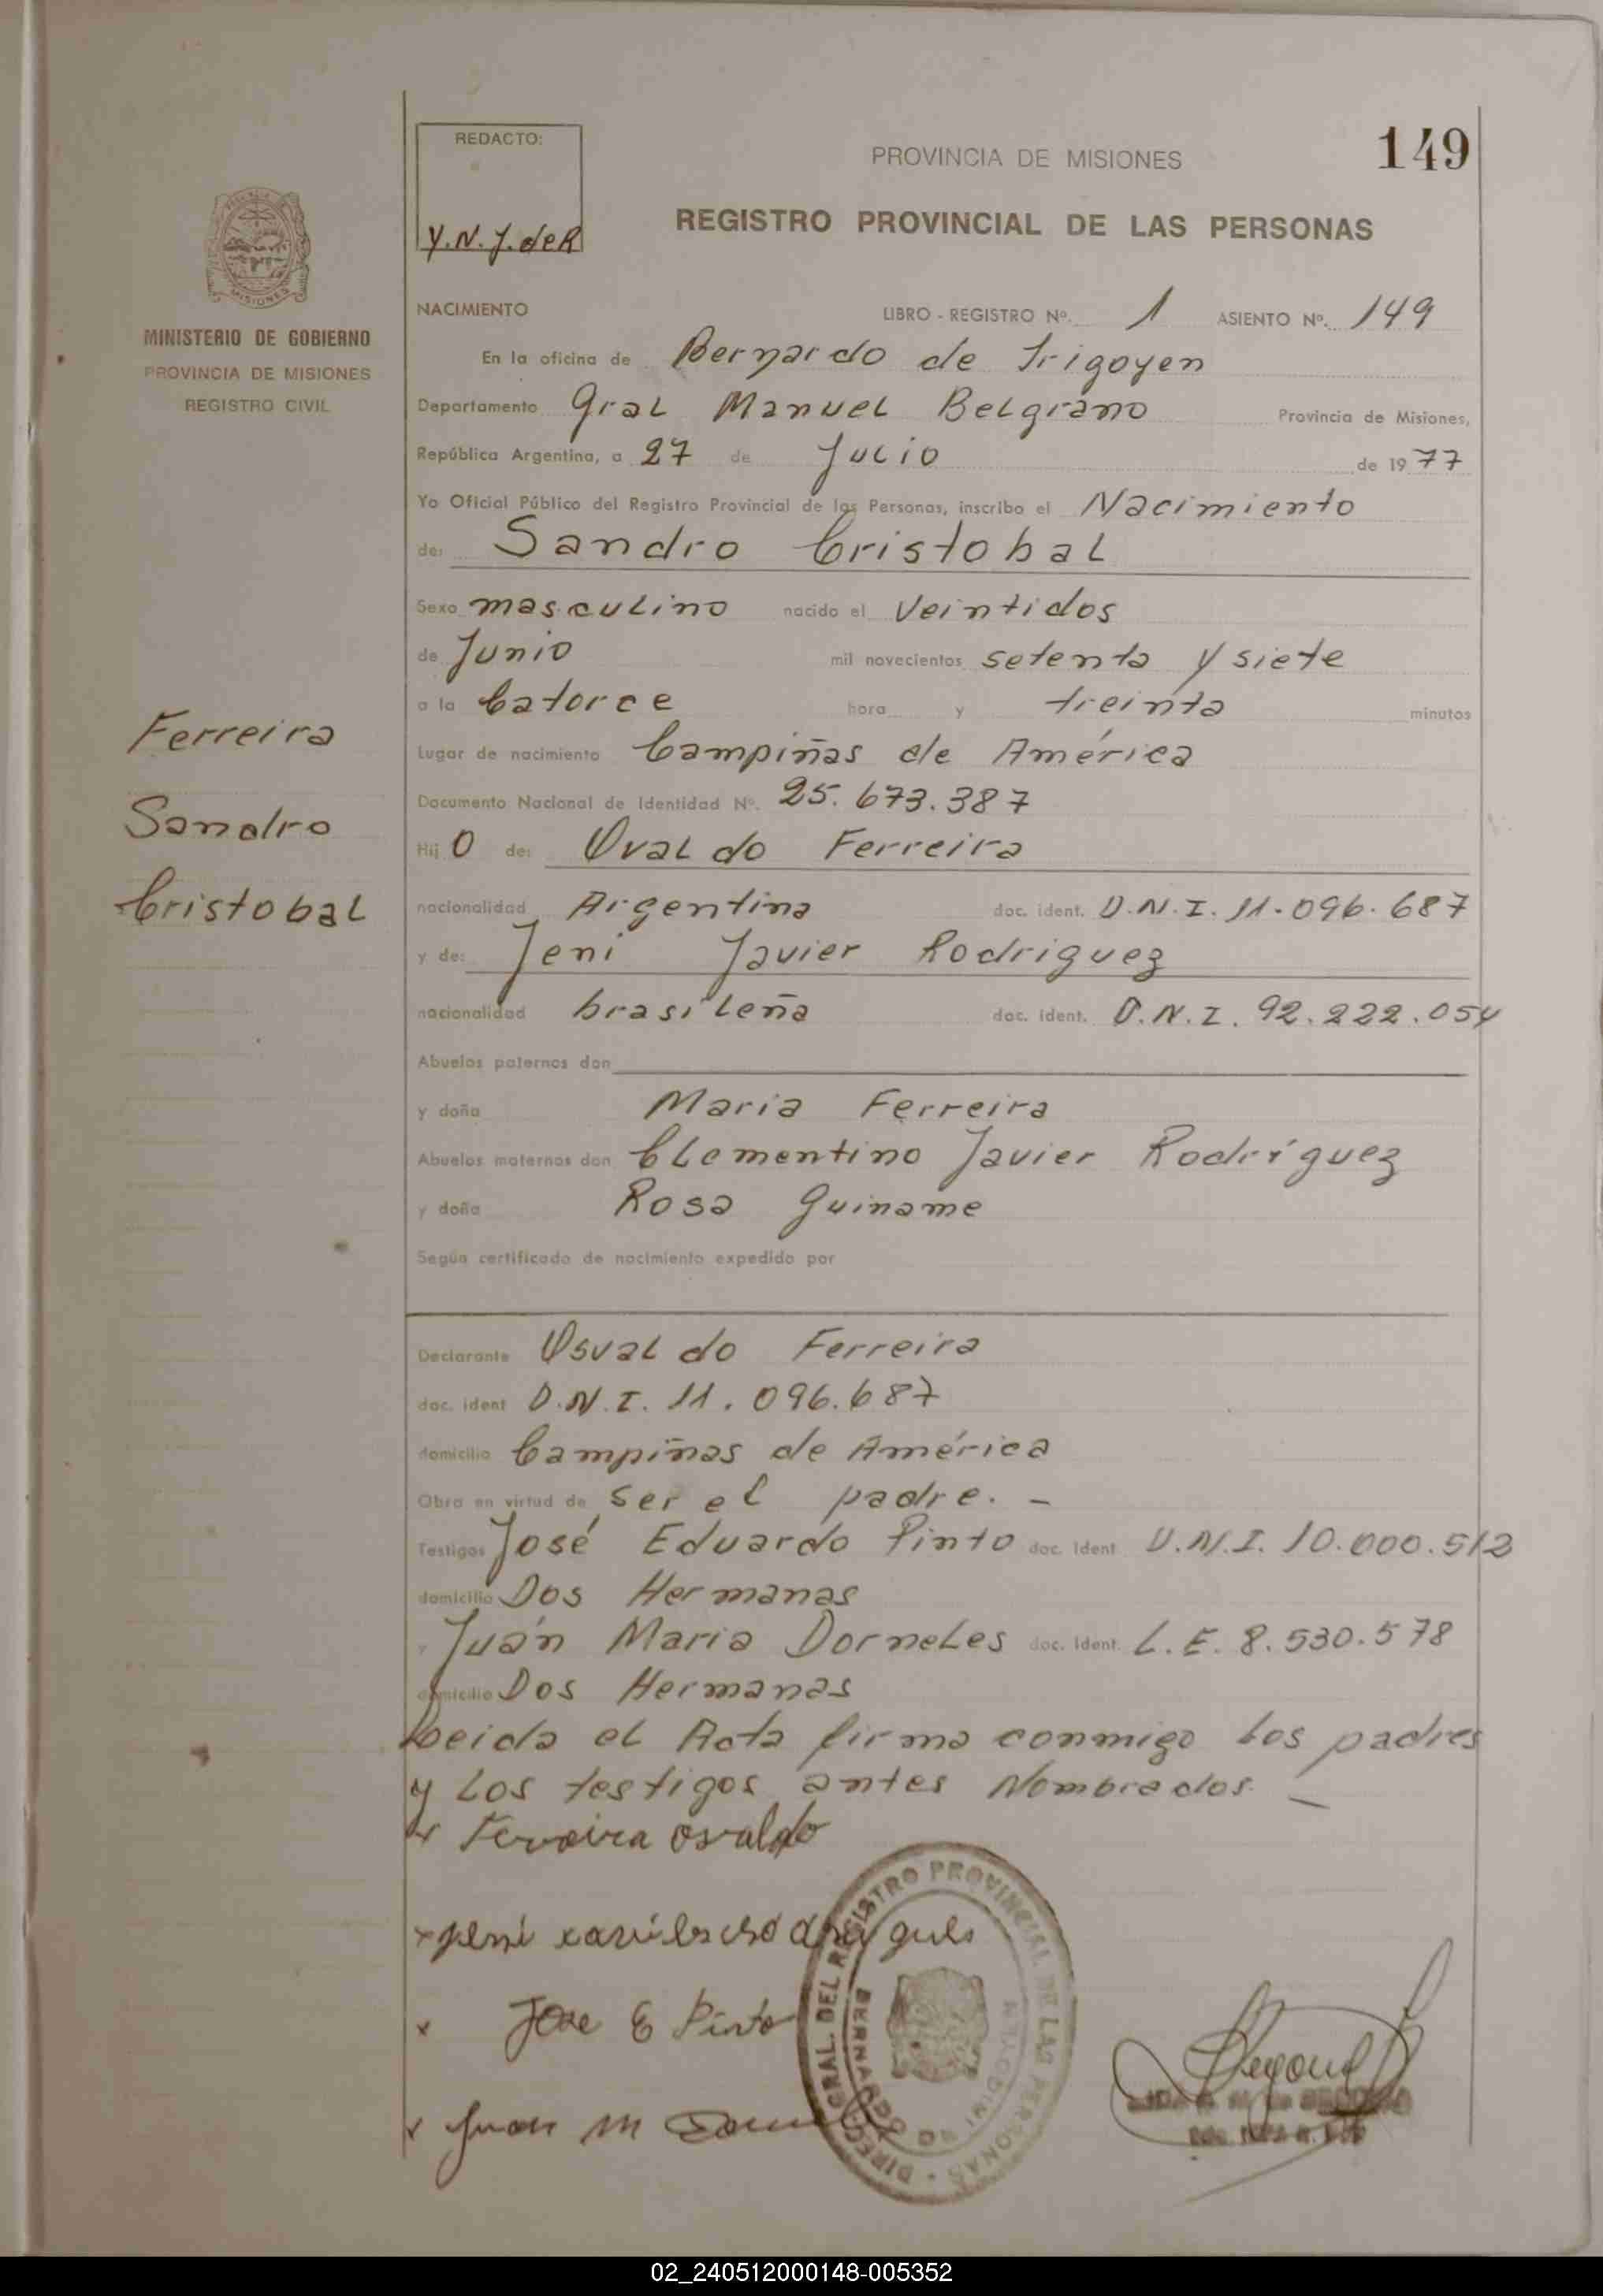 REDACTO:
Y.N.J. de R
PROVINCIA DE MISIONES
149
REGISTRO PROVINCIAL DE LAS PERSONAS
MISIONES
MINISTERIO DE GOBIERNO
PROVINCIA DE MISIONES
REGISTRO CIVIL
Ferreira
Sandro
Cristobal
NACIMIENTO LIBRO - REGISTRO Nº. 1 ASIENTO Nº. 149
En la oficina de Bernardo de Irigoyen
Departamento Gral Manuel Belgrano Provincia de Misiones,
República Argentina, a 27 de Julio de 1977
Yo Oficial Público del Registro Provincial de las Personas, inscribo el Nacimiento
de: Sandro Cristobal
Sexo masculino nacido el veintidos
de Junio mil novecientos setenta y siete
a la Catorce hora y treinta minutos
Lugar de nacimiento Campiñas de América
Documento Nacional de Identidad Nº. 25.673.387
Hijo de: Oval do Ferreira
nacionalidad Argentina doc. ident. D.N.I. 11.096.687
y de: Jeni Javier Rodriguez
nacionalidad brasileña doc. ident. D.N.I. 92.222.054
Abuelos paternos don
y doña Maria Ferreira
Abuelos maternos don Clementino Javier Rodríguez
y doña Rosa Guiname
Según certificado de nacimiento expedido por
Declarante Osval do Ferreira
doc. ident D.N.I. 11.096.687
domicilio Campiñas de América
Obra en virtud de ser el padre. -
Testigos José Eduardo Pinto doc. Ident D.N.I. 10.000.512
domicilio Dos Hermanas
y Juán Maria Dorneles doc. Ident. L.E. 8.530.578
domicilio Dos Hermanas
Leida el Acta firma conmigo los padres
y los testigos antes Nombrados. -
x Ferreira Osvaldo
x Jeni
x Jose E Pinto
x Juan M
DIRECC. GRAL. DEL REGISTRO PROVINCIAL DE LAS PERSONAS
BERNARDO DE
02_240512000148-005352